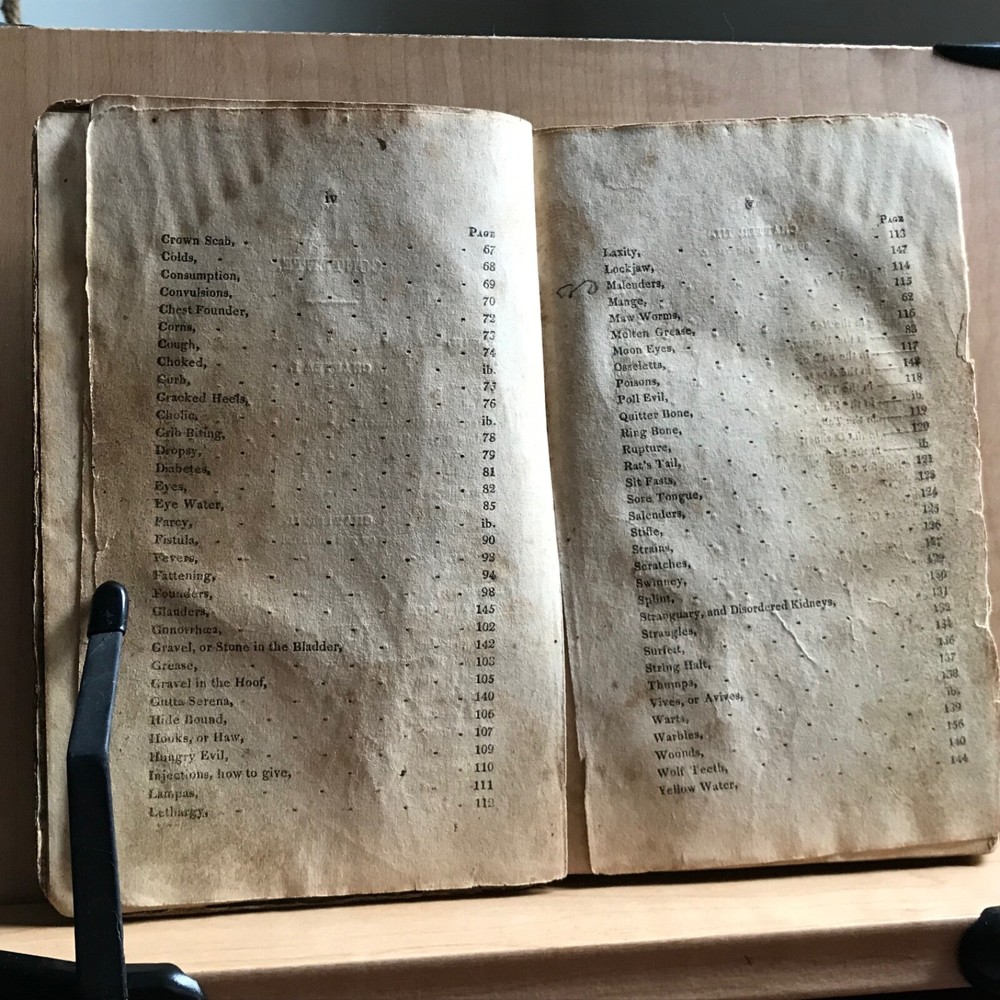 iv
PAGE
Crown Scab, - 67
Colds, - 68
Consumption, - 69
Convulsions, - 70
Chest Founder, - 72
Corns, - 73
Cough, - 74
Choked, - ib.
Curb, - 75
Cracked Heels, - 76
Cholic, - ib.
Crib Biting, - 78
Dropsy, - 79
Diabetes, - 81
Eyes, - 82
Eye Water, - 85
Farcy, - ib.
Fistula, - 90
Fevers, - 93
Fattening, - 94
Founders, - 98
Glanders, - 145
Gonorrhœa, - 102
Gravel, or Stone in the Bladder, - 142
Grease, - 103
Gravel in the Hoof, - 105
Gutta Serena, - 140
Hide Bound, - 106
Hooks, or Haw, - 107
Hungry Evil, - 109
Injections, how to give, - 110
Lampas, - 111
Lethargy, - 112
v
PAGE
Laxity, - 113
Lockjaw, - 147
Malenders, - 114
Mange, - 115
Maw Worms, - 62
Molten Grease, - 116
Moon Eyes, - 83
Osseletts, - 117
Poisons, - 148
Poll Evil, - 118
Quitter Bone, - ib.
Ring Bone, - 119
Rupture, - 120
Rat's Tail, - ib.
Sit Fasts, - 121
Sore Tongue, - 123
Salenders, - 124
Stifle, - 125
Strains, - 126
Scratches, - 127
Swinney, - 129
Splint, - 130
Stranguary, and Disordered Kidneys, - 131
Strangles, - 132
Surfeit, - 134
String Halt, - 136
Thumps, - 137
Vives, or Avives, - 138
Warts, - ib.
Warbles, - 139
Wounds, - 156
Wolf Teeth, - 140
Yellow Water, - 144